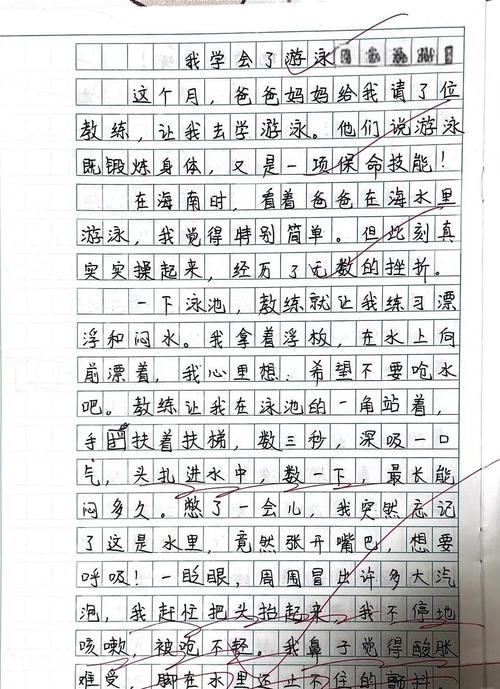 我学会了游泳
这个月，爸爸妈妈给我请了位
教练，让我去学游泳。他们说游泳
既锻炼身体，又是一项保命技能！
在海南时，看着爸爸在海水里
游泳，我觉得特别简单。但此刻真
实实操起来，经历了无数的挫折。
一下泳池，教练就让我练习漂
浮和闷水。我拿着浮板，在水上向
前漂着，我心里想：希望不要呛水
吧。教练让我在泳池的一角站着，
手扶着扶梯，数三秒，深吸一口
气，头扎进水中，数一下，最长能
闷多久。憋了一会儿，我突然忘记
了这是水里，竟然张开嘴巴，想要
呼吸！一眨眼，周围冒出许多大汽
泡，我赶忙把头抬起来，我不停地
咳嗽，被呛不轻。我鼻子觉得酸胀
难受，脚在水里还止不住的颤抖。